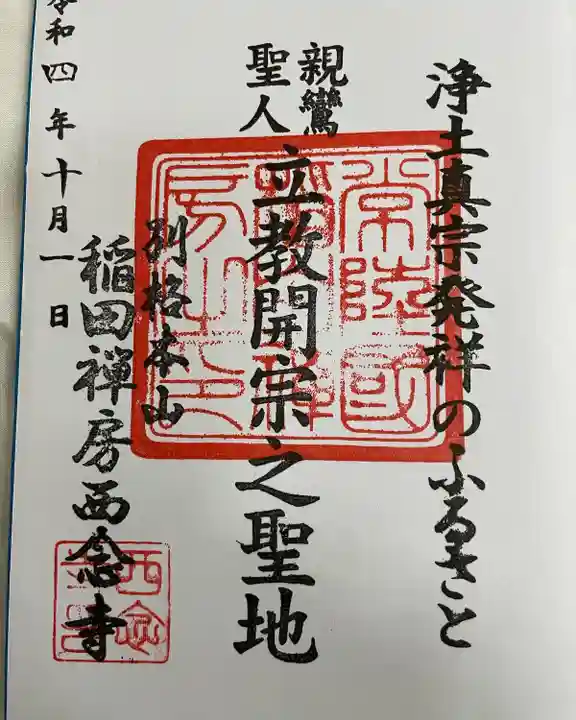 浄土真宗発祥のふるさと
親鸞
聖人
立教開宗之聖地
別格本山
稲田禅房西念寺
令和四年十月一日
常陸国
西念